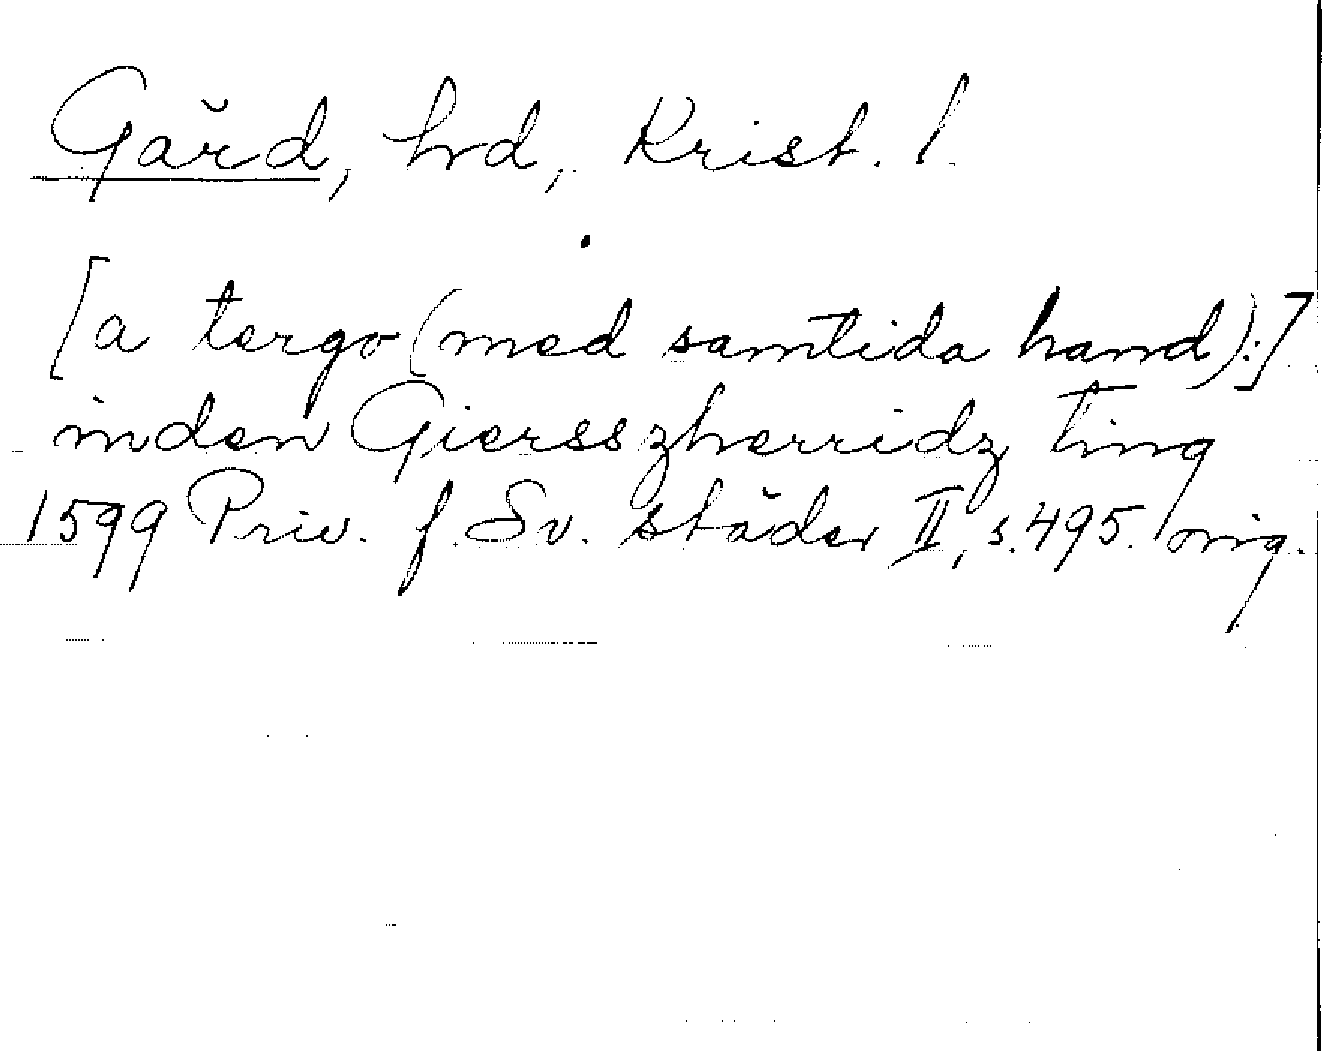 Gärd, hrd, Krist. l.
[a tergo (med samtida hand):]
inden Giersszherridz Ting
1599 Priv. f. Sv. städer II, s. 495. orig.